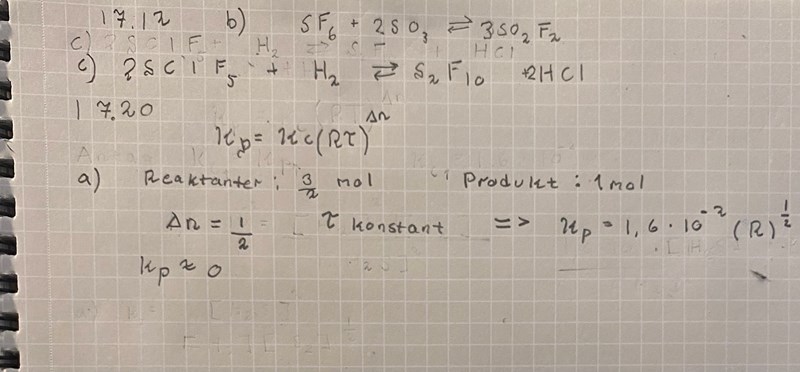 17.12 b) SF₆ + 2SO₃ ⇌ 3SO₂F₂
c) 2SClF₅ + H₂ ⇌ S₂F₁₀ + 2HCl
17.20
Kp = Kc(RT)^Δn
a) Reaktanter: 3/2 mol Produkt: 1 mol
Δn = 1/2 T konstant => Kp = 1,6 · 10⁻² (R)^1/2
Kp ≈ 0